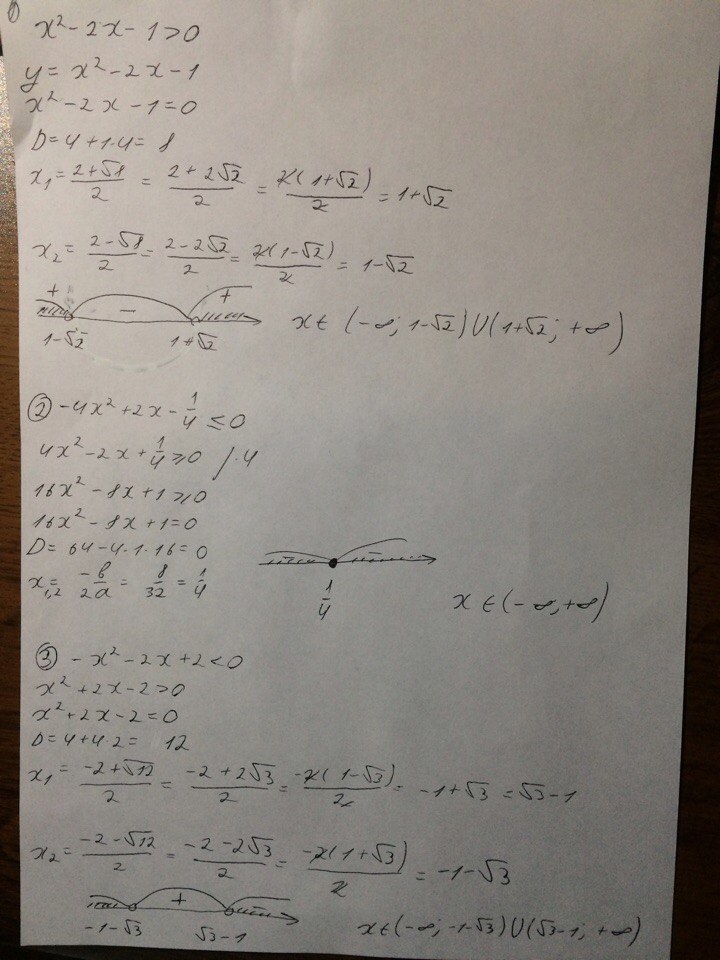 1)
x² - 2x - 1 > 0
y = x² - 2x - 1
x² - 2x - 1 = 0
D = 4 + 1·4 = 8
x₁ = (2+√8)/2 = (2+2√2)/2 = 2(1+√2)/2 = 1+√2
x₂ = (2-√8)/2 = (2-2√2)/2 = 2(1-√2)/2 = 1-√2
+ - +
1-√2 1+√2 x ∈ (-∞; 1-√2) U (1+√2; +∞)
② -4x² + 2x - 1/4 ≤ 0
4x² - 2x + 1/4 ≥ 0 /·4
16x² - 8x + 1 ≥ 0
16x² - 8x + 1 = 0
D = 64 - 4·1·16 = 0
x₁,₂ = -b/2a = 8/32 = 1/4
- -
1/4 x ∈ (-∞, +∞)
③ -x² - 2x + 2 < 0
x² + 2x - 2 > 0
x² + 2x - 2 = 0
D = 4 + 4·2 = 12
x₁ = (-2+√12)/2 = (-2+2√3)/2 = -2(1-√3)/2 = -1+√3 = √3-1
x₂ = (-2-√12)/2 = (-2-2√3)/2 = -2(1+√3)/2 = -1-√3
- + -
-1-√3 √3-1 x ∈ (-∞; -1-√3) U (√3-1; +∞)